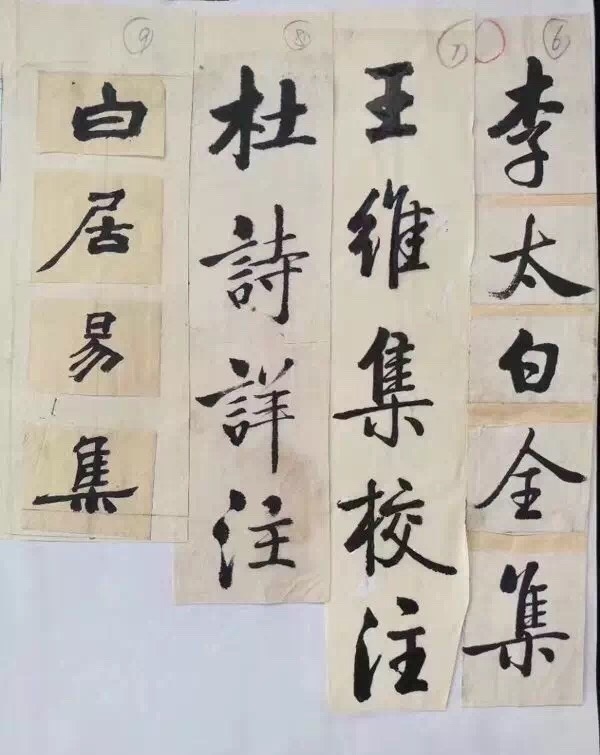 ⑥
李太白全集
⑦
王維集校注
⑧
杜詩詳注
⑨
白居易集